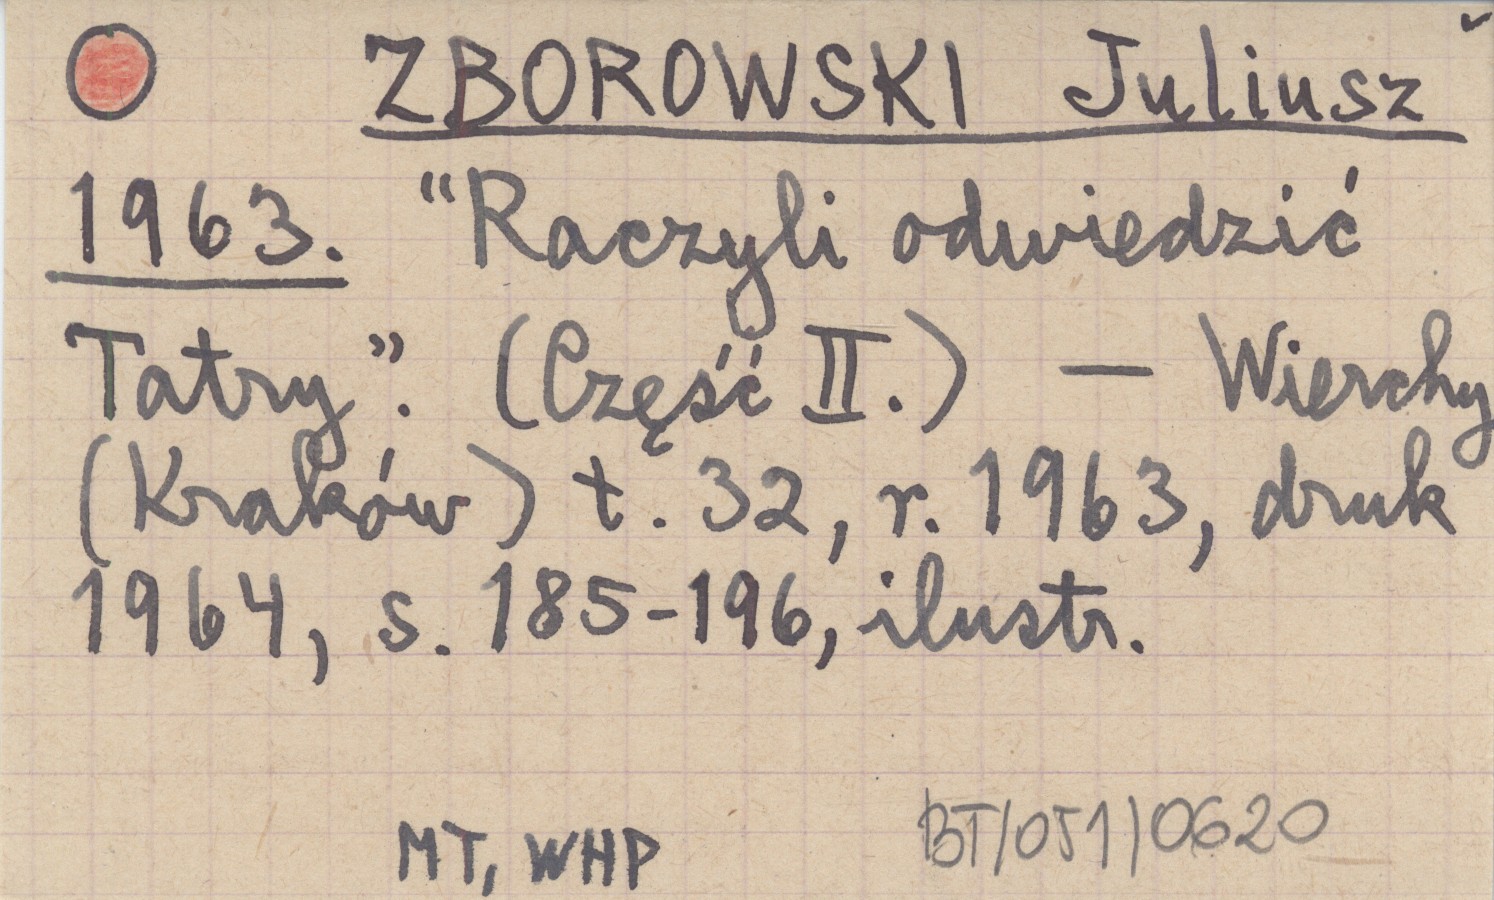 ZBOROWSKI Juliusz
1963. "Raczyli odwiedzić
Tatry". (Część II.) — Wierchy
(Kraków) t. 32, r. 1963, druk
1964, s. 185-196, ilustr.
MT, WHP
BT/051/0620